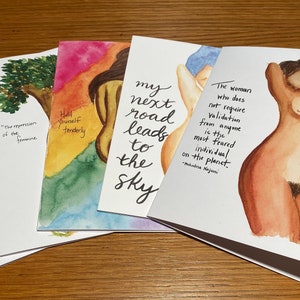 "The repression
of the
feminine
Hold
yourself
tenderly
my
next
road
leads
to
the
sky
"The woman
who does
not require
validation
from anyone
is the
most feared
individual
on the planet."
-Mohadesa Najumi